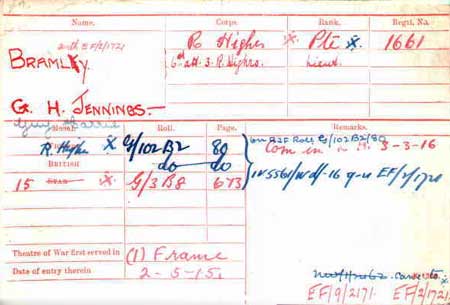 Name. Corps. Rank. Regtl. No.
auth EF/2/1721
BRAMLEY R Highrs X Pte X. 1661
6th att. 3. R. Highrs. Lieut.
G. H. JENNINGS.—
Guy Harris
Medal. Roll. Page. Remarks.
R Highrs X G/102B2 80 on B2F Roll G/102B2/80
British do do Com in R.H. 3-3-16
15 Star X. G/3 B8 673
EF/2/1721
Theatre of War first served in (1) France
Date of entry therein 2-5-15.
EF/9/2171. EF/2/1721